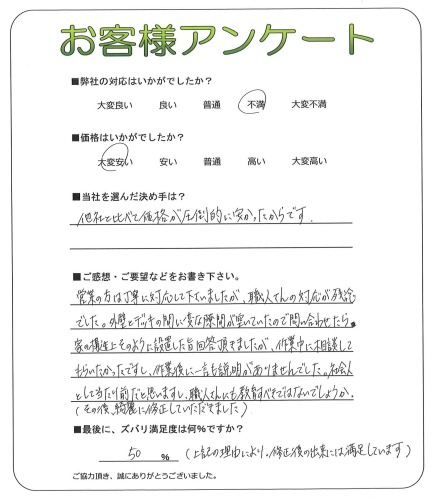 お客様アンケート
■弊社の対応はいかがでしたか？
大変良い 良い 普通 不満 大変不満
■価格はいかがでしたか？
大変安い 安い 普通 高い 大変高い
■当社を選んだ決め手は？
他社と比べて価格が圧倒的に安かったからです．
■ご感想・ご要望などをお書き下さい。
営業の方は丁寧に対応して下さいましたが、職人さんの対応が残念
でした。外壁とデッキの間に変な隙間が空いていたので問い合わせたら、
家の構造上そのように設置した旨回答頂きましたが、作業中に相談して
もらいたかったですし、作業後に一言も説明がありませんでした。社会人
として当たり前だと思いますし、職人さんにも教育すべきではないでしょうか。
（その後、綺麗に修正していただきました）
■最後に、ズバリ満足度は何％ですか？
50 ％ （上記の理由により。修正後の出来には満足しています）
ご協力頂き、誠にありがとうございました。